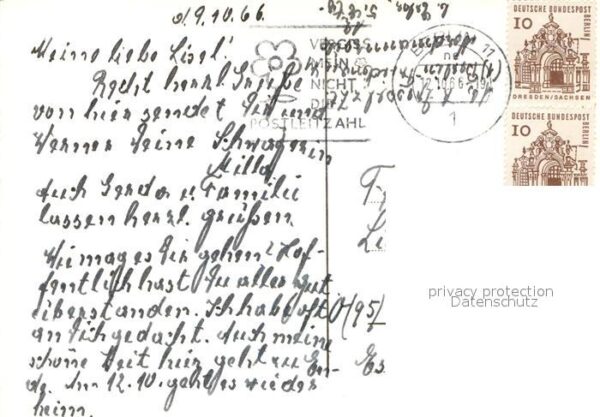 d. 9.10.66.
Meine liebe Lisel!
Recht herzl. Grüße
von hier sendet Dir und
Werner Deine Schwägerin
Milla
Auch Gerda u. Familie
lassen herzl. grüßen
Wie mag es Dir gehen? Hof-
fentlich hast Du alles gut
überstanden. Ich habe oft
an Dich gedacht. Auch meine
schöne Zeit hier geht zu En-
de. Am 12.10. geht es wieder
heim.
VERGISS
MEIN
NICHT
DIE
POSTLEITZAHL
BERLIN 11
10.66
1
10
DEUTSCHE BUNDESPOST
BERLIN
DRESDEN/SACHSEN
10
DEUTSCHE BUNDESPOST
BERLIN
(95)
Es
privacy protection
Datenschutz